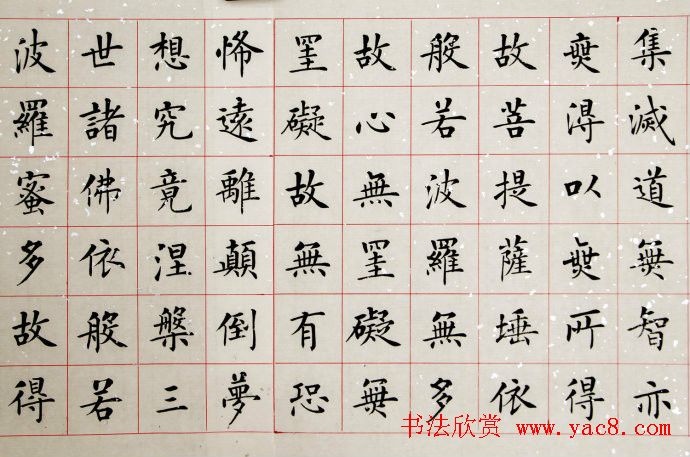 集滅道無智亦
無得以無所得
故菩提薩埵依
般若波羅無多
故心無罣礙無
罣礙故無有恐
怖遠離顛倒夢
想究竟涅槃三
世諸佛依般若
波羅蜜多故得
书法欣赏 www.yac8.com